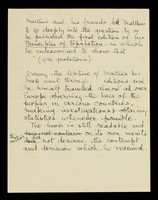 Malthus and his friends led Malthus
to go deeply into the question & so
he published the first edition of his
Principles of Population in which
he endeavoured to show that
(vide quotation)
During the lifetime of Malthus his
book went through editions and
he himself travelled almost all over
Europe observing the lives of the
peoples in various countries,
making investigations & obtaining
statistics whenever possible.
The book is still readable and
on its own merits
does not deserve the contempt
and derision which it received.